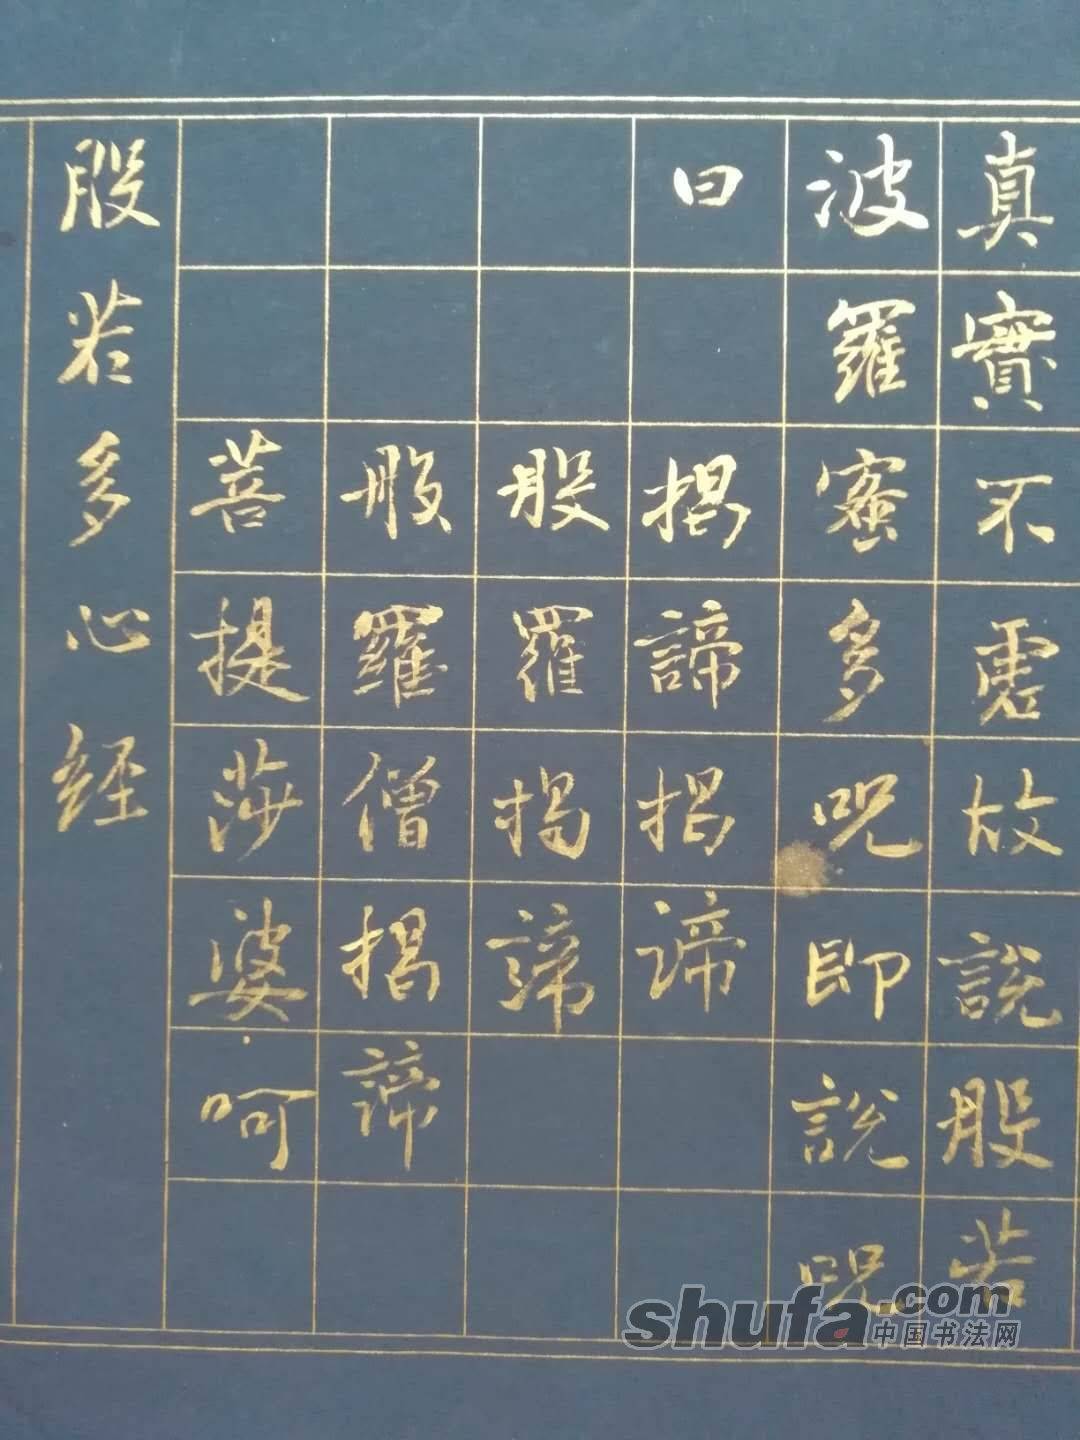 真實不虛故說般若
波羅蜜多呪即說呪
曰揭諦揭諦
般羅揭諦
般羅僧揭諦
菩提莎婆呵
般若多心经
shufa.com
中国书法网